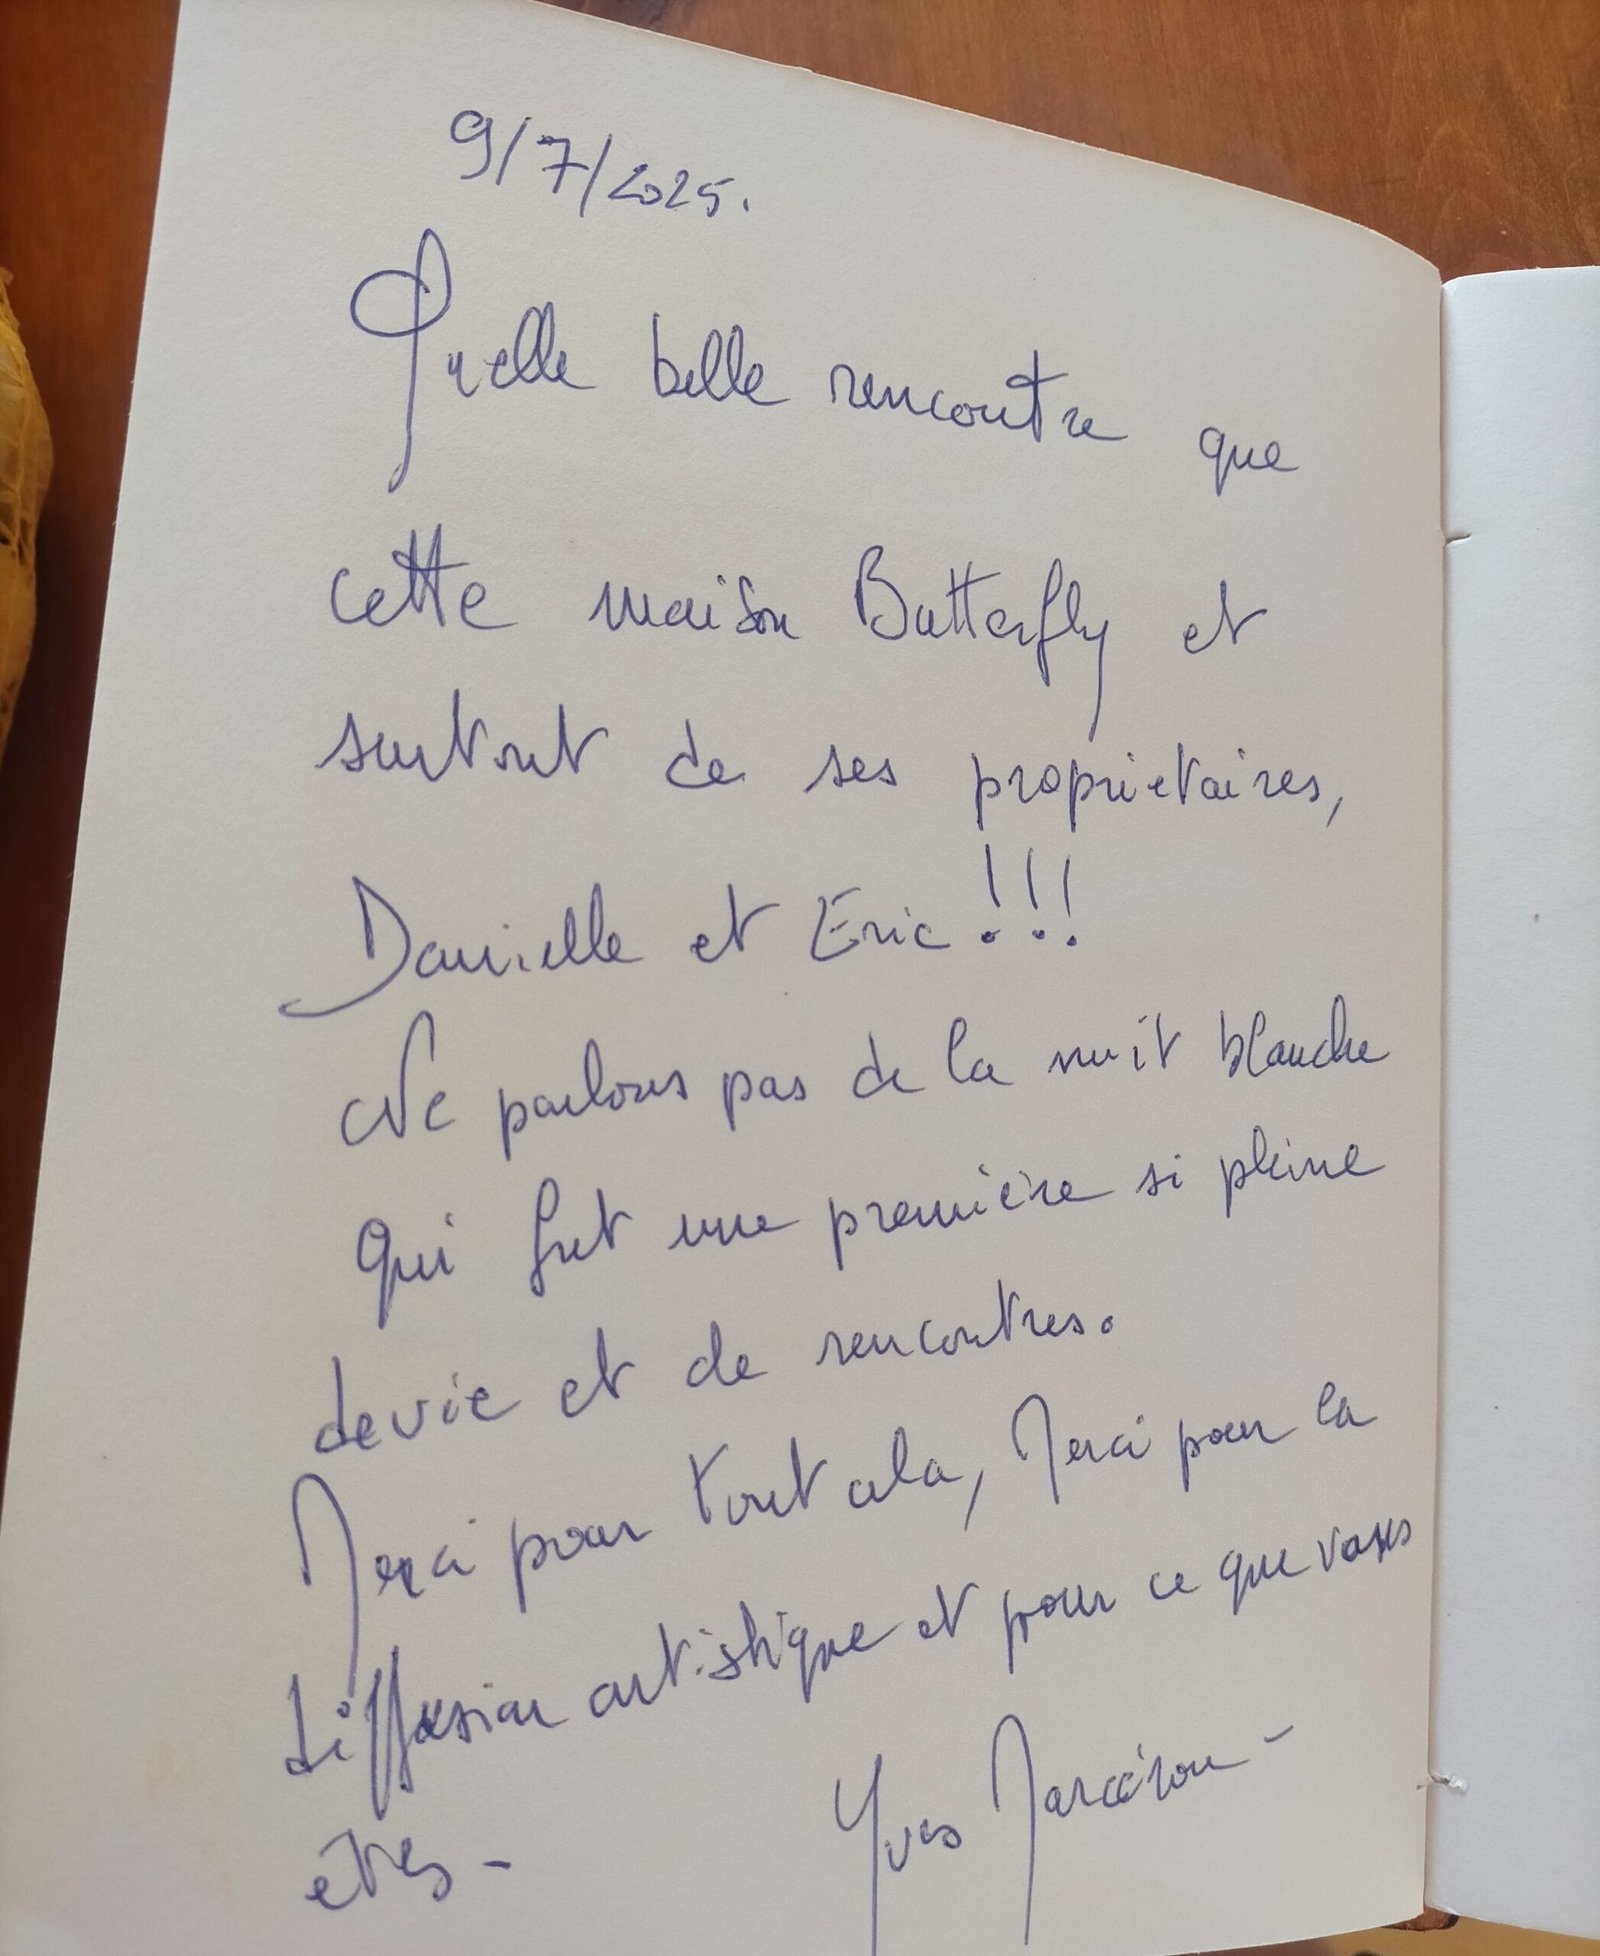 9/7/2025.
Quelle belle rencontre que
cette maison Butterfly et
surtout de ses proprietaires,
Danielle et Eric !!!
Ne parlons pas de la nuit blanche
qui fut une première si pleine
de vie et de rencontres.
Merci pour tout cela, Merci pour la
diffusion artistique et pour ce que vous
êtes -
Yves